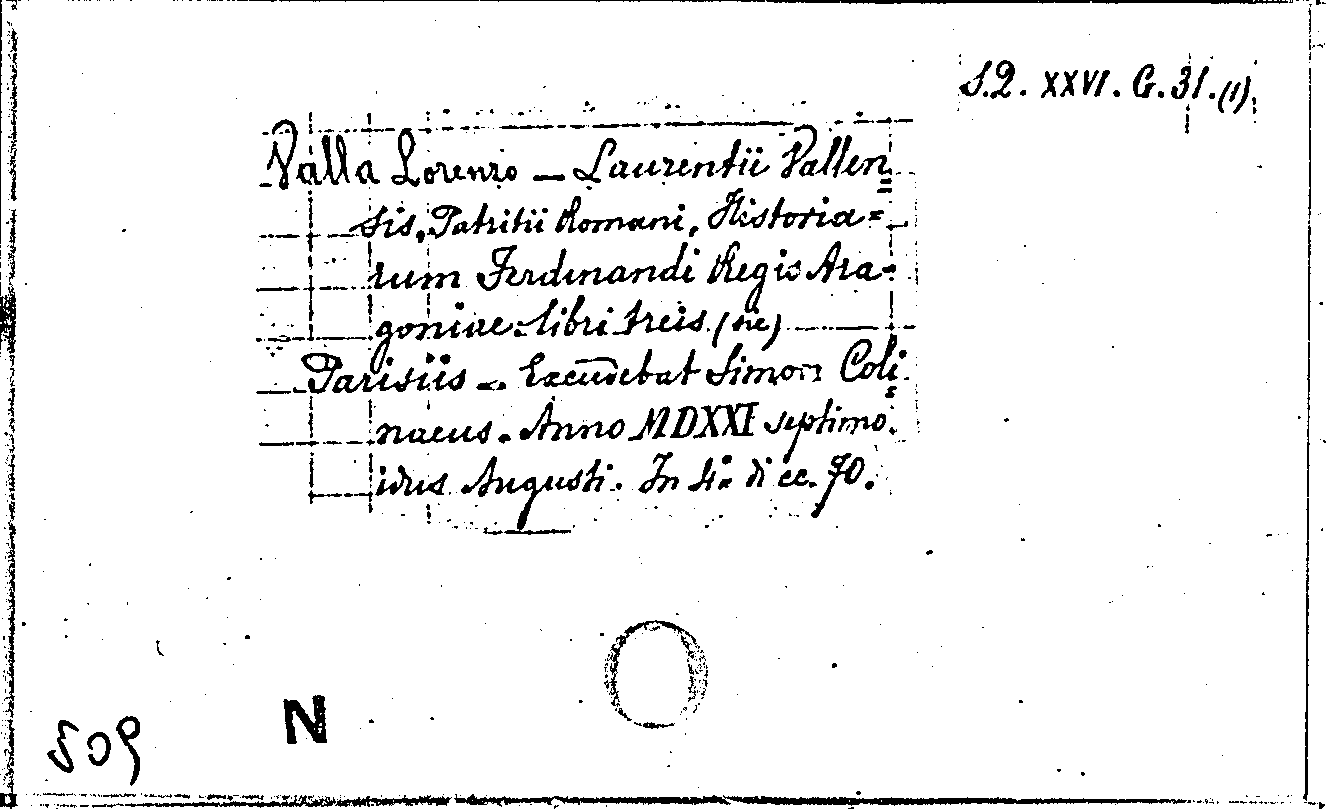 S.Q. XXVI. G. 31. (1).
Valla Lorenzo — Laurentii Vallen=
sis, Patritii Romani, Historia=
rum Ferdinandi Regis Ara=
goniae: libri treis (sic)
Parisiis —. Excudebat Simon Coli=
naeus. Anno MDXXI septimo.
idus Augusti. In 4º di cc. 70.
N
509